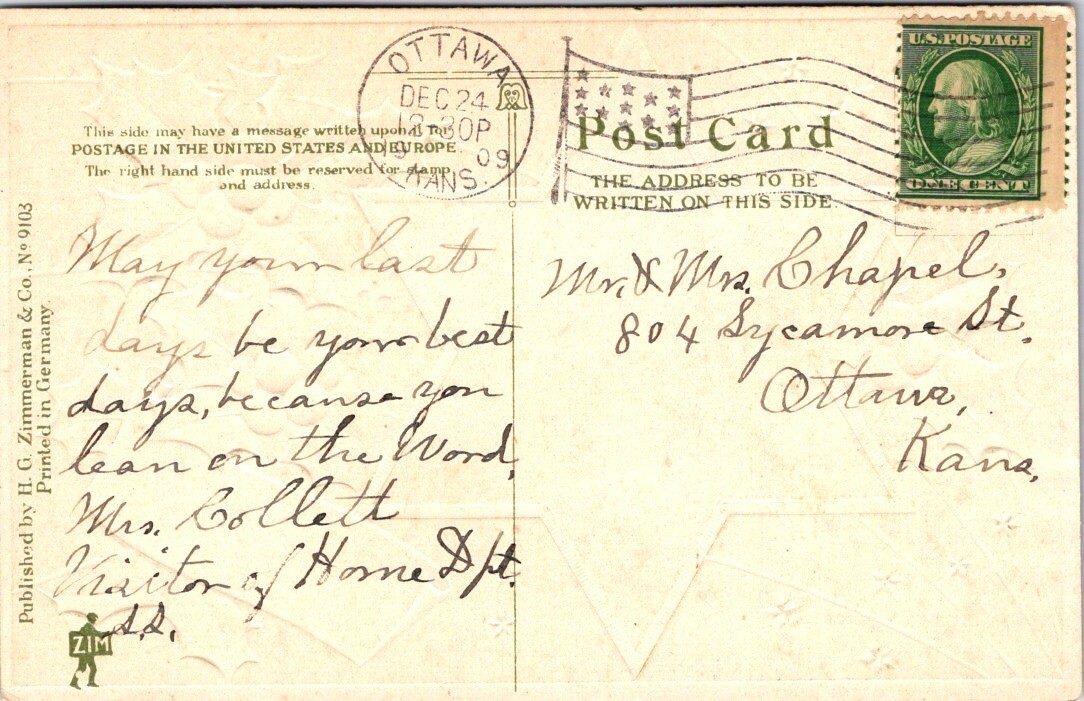 OTTAWA
DEC 24
12-30P
09
KANS.
U.S. POSTAGE
ONE CENT
This side may have a message written upon it for
POSTAGE IN THE UNITED STATES AND EUROPE.
The right hand side must be reserved for stamp
and address.
Post Card
THE ADDRESS TO BE
WRITTEN ON THIS SIDE
May your last
days be your best
days, because you
lean on the Word,
Mrs. Collett
Visitor of Home Dpt.
S.S.
Mr. & Mrs. Chapel,
804 Sycamore St.
Ottawa,
Kans,
Published by H. G. Zimmerman & Co., No 9103
Printed in Germany.
ZIM